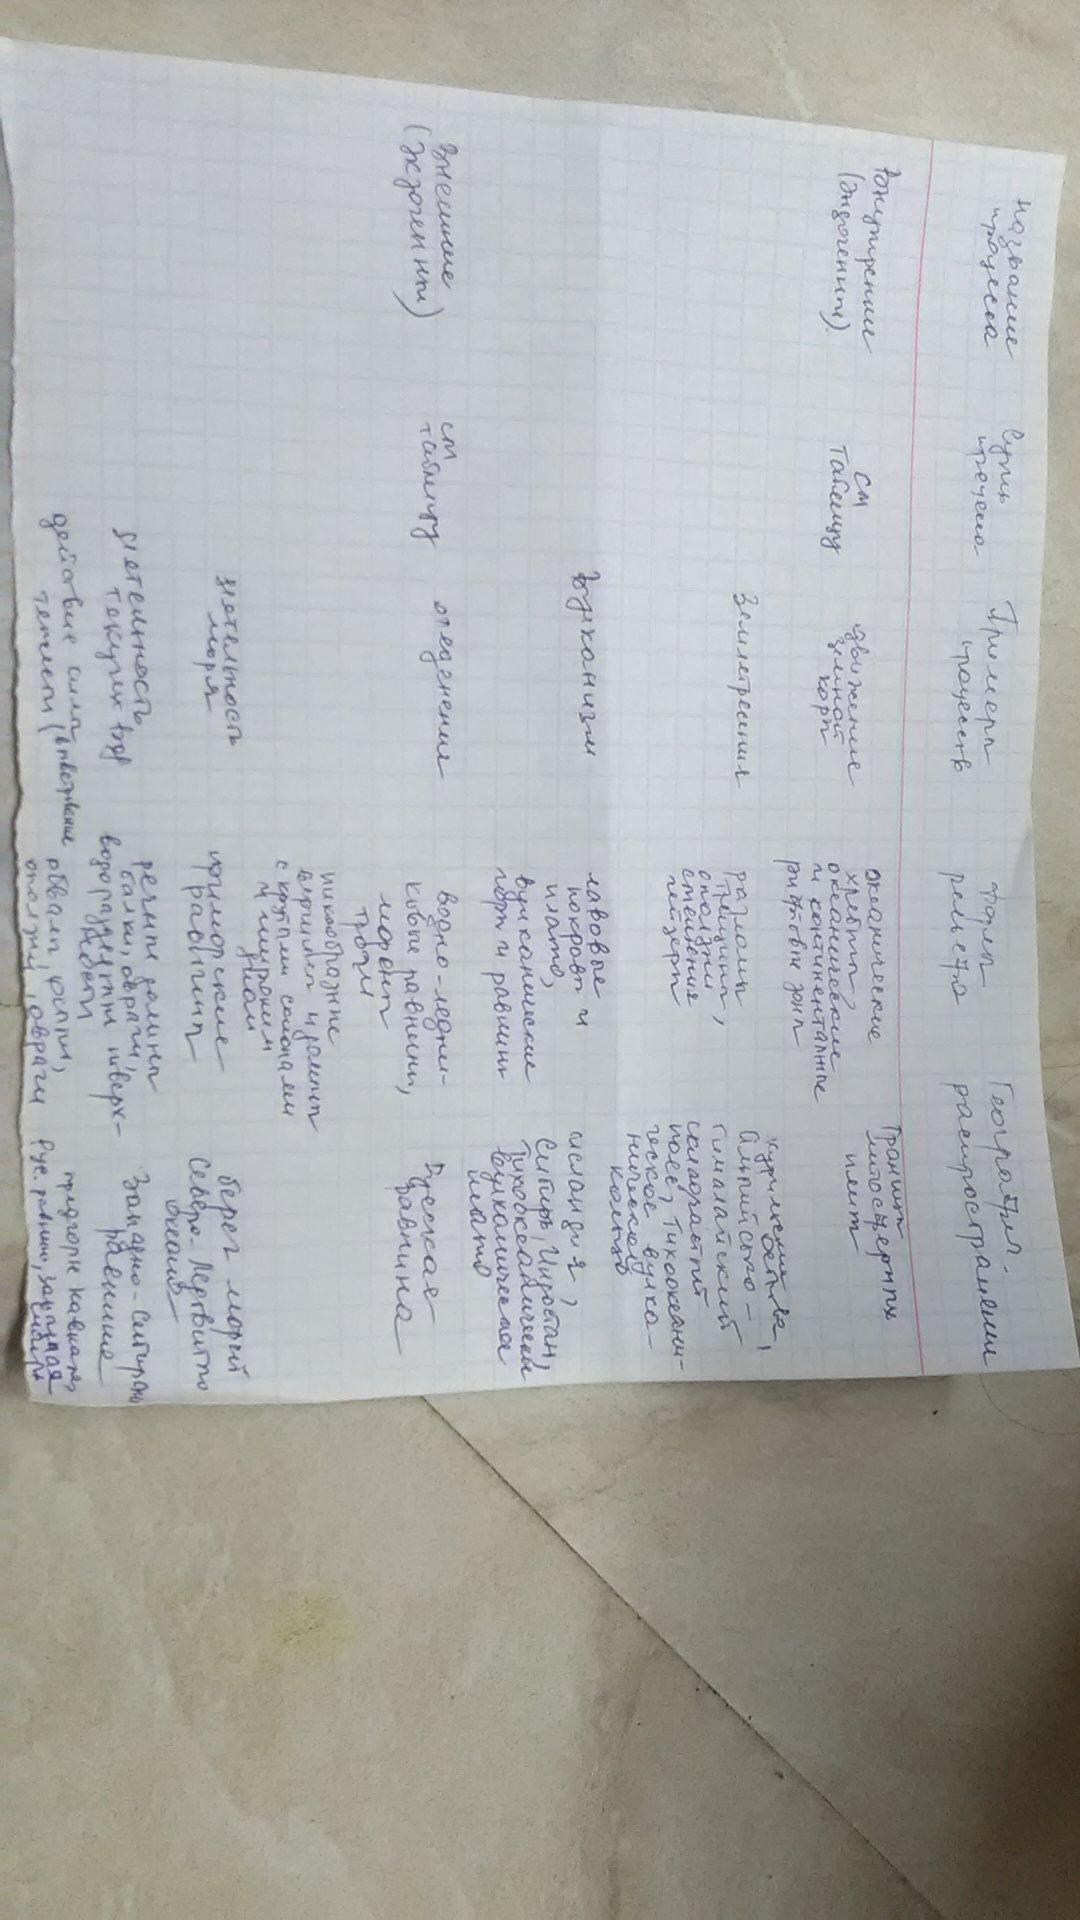 название
процесса
Суть
процесса
Примеры
процессов
формы
рельефа
Географ.
распространения
Внутренние
(эндогенны)
см
таблицу
движение
земной
коры
океанические
хребты,
океанические
и континентальные
рифтовы зоны
Границы
литосферных
плит
Землетресения
разломы
трещины,
оползни
смещения
Курильские
Альпийско-
Гималайский
складчатый
пояс, Тихоокеани-
ческое вулка-
ническое
кольцо
Вулканизм
лавовые
покровы и
плато,
вулканические
горы и равнины
исландия,
Сибирь, Индостан,
Тихоокеанические
вулканическое
плато
Внешние
(экзогенны)
см
таблицу
оледенения
водно-ледни-
ковые равнины,
морены
троги
пикообразные
вершины и долины
с крутыми склонами
и широким
дном
Русская
равнина
деятельность
моря
приморские
равнины
берег морей
Северо-Ледовитого
океана
деятельность
текучих вод
речные долины
балки, овраги,
водораздельны поверх-
ности
Западно-Сибирская
равнина
действие силы
тяжести
обвалы, осыпи,
оползни, овраги
предгорье кавказа,
Рус. равнина, западная
сибирь